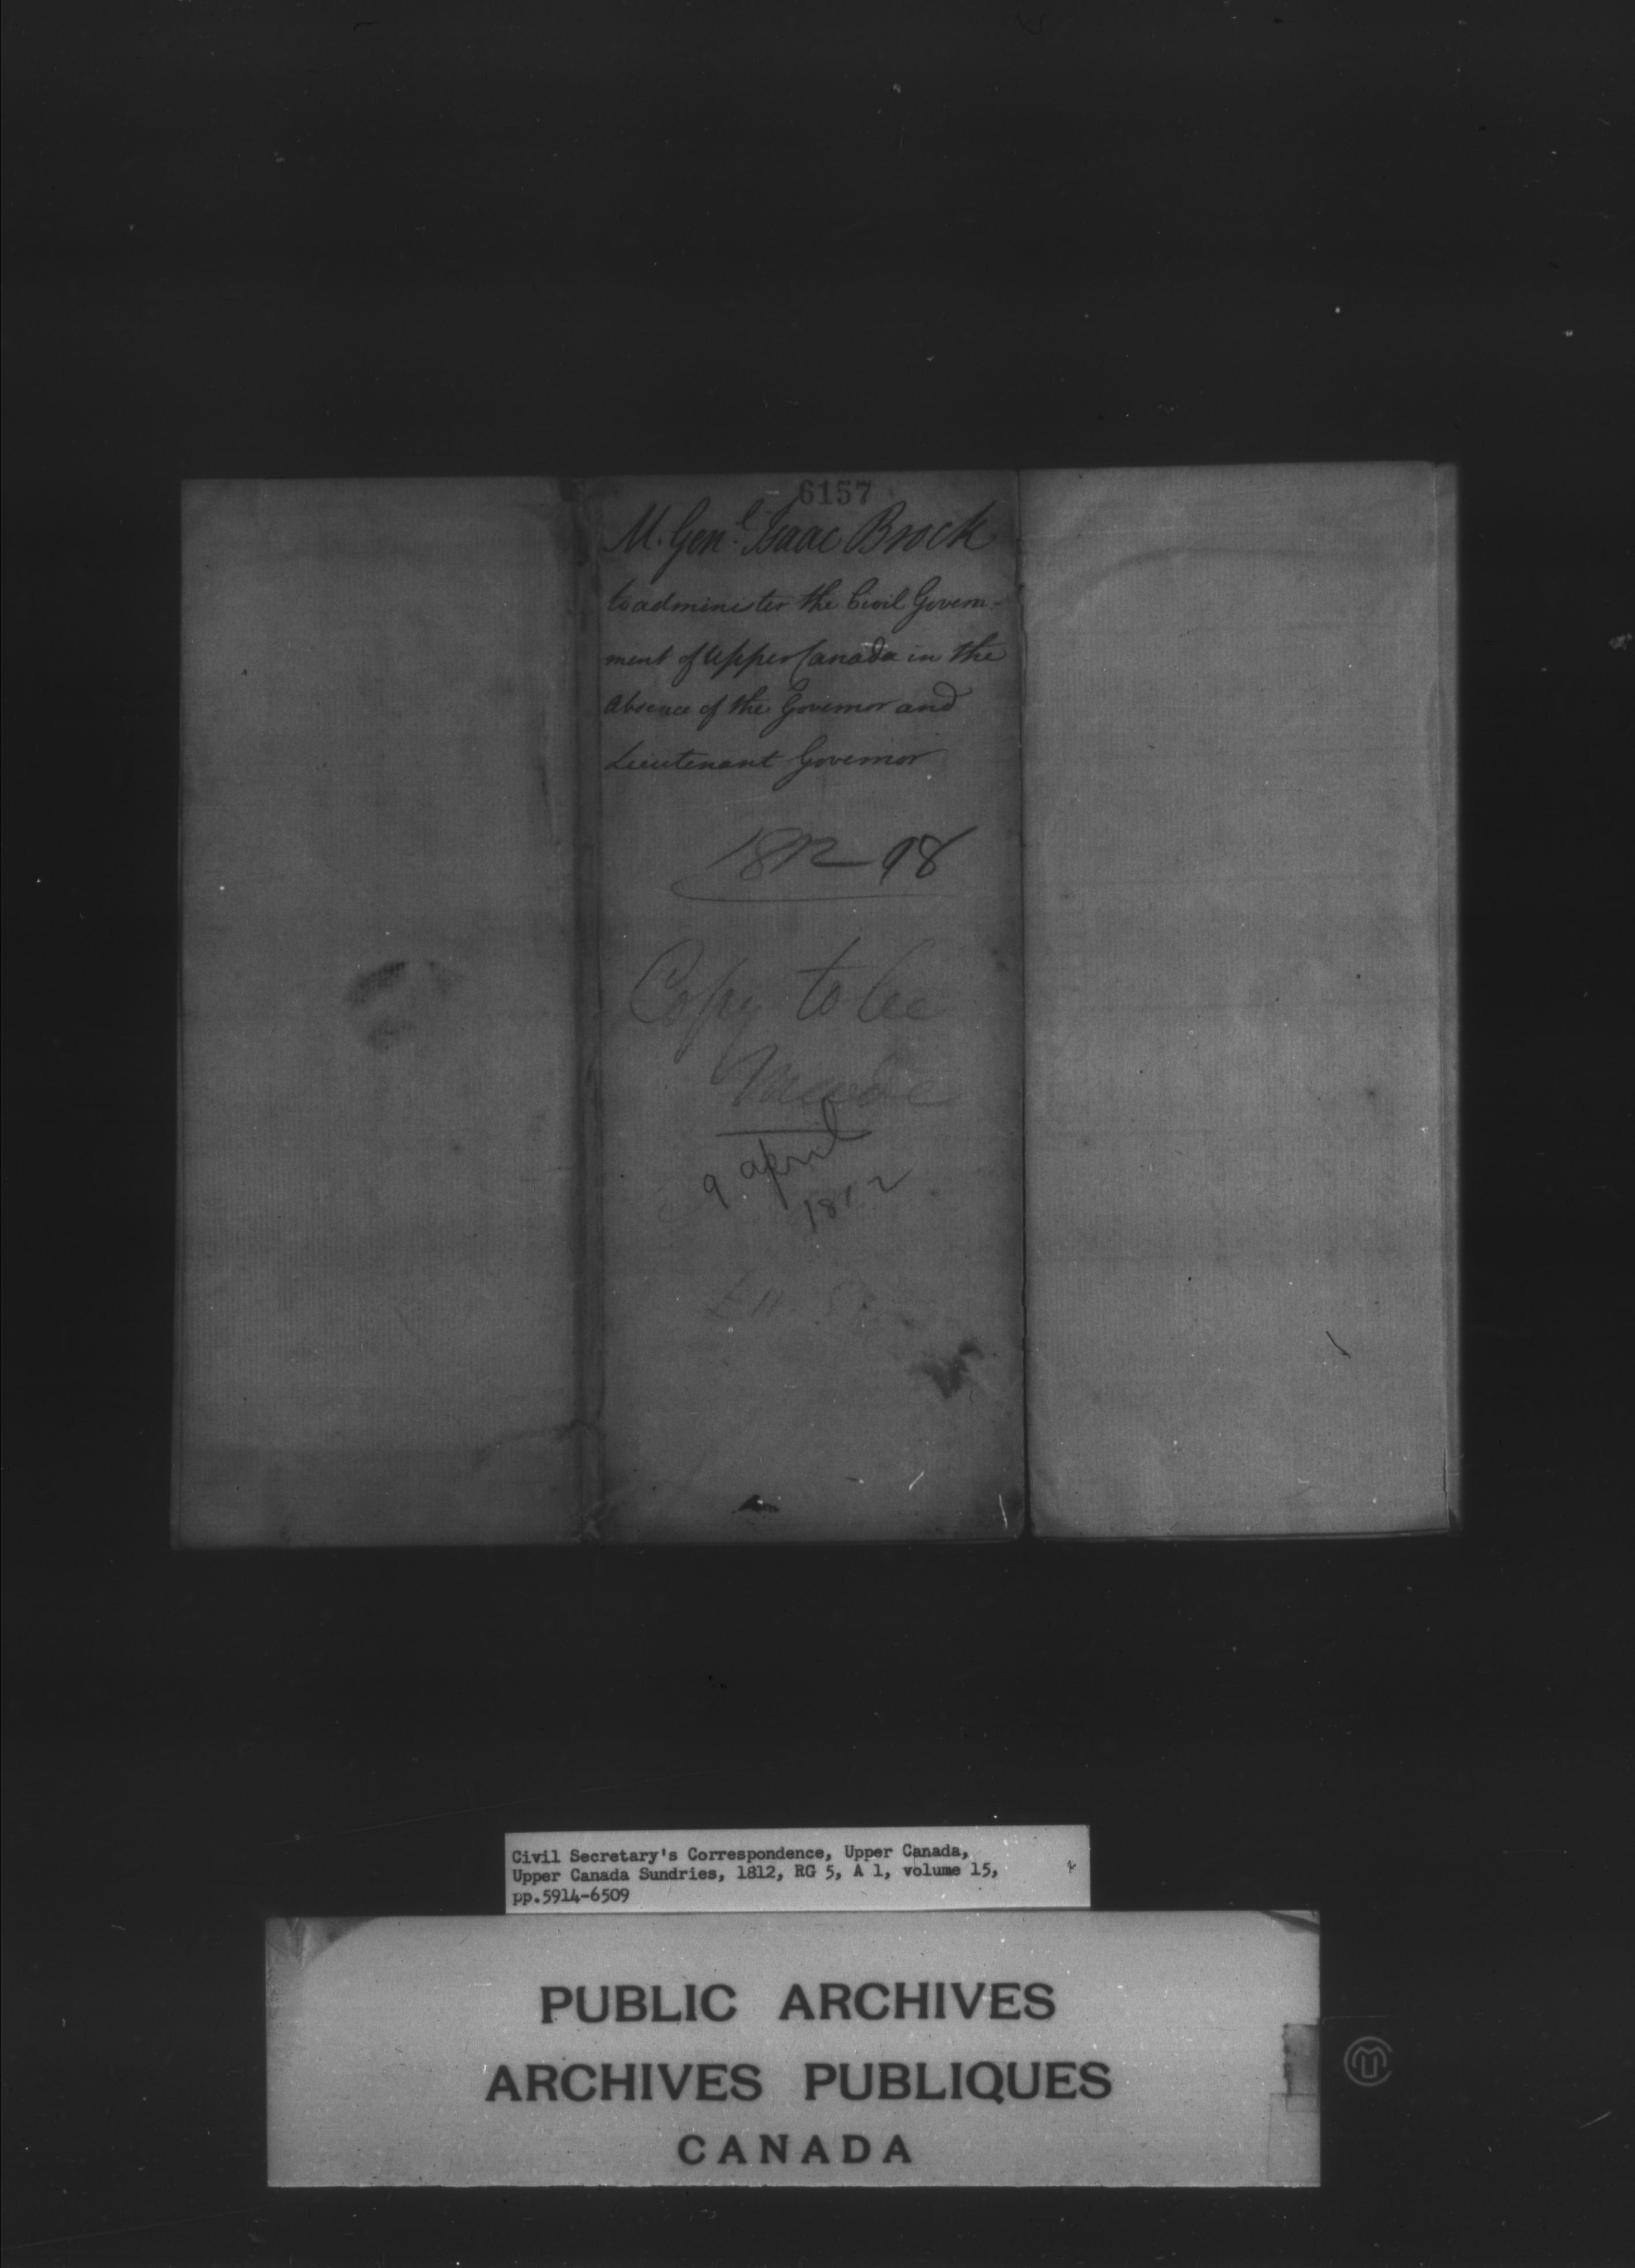 6157
M. Genl. Isaac Brock
to administer the Civil Govern-
ment of Upper Canada in the
Absence of the Governor and
Lieutenant Governor
1812 98
Copy to be
Made
9 april
1812
Civil Secretary's Correspondence, Upper Canada,
Upper Canada Sundries, 1812, RG 5, A 1, volume 15,
pp.5914-6509
PUBLIC ARCHIVES
ARCHIVES PUBLIQUES
CANADA